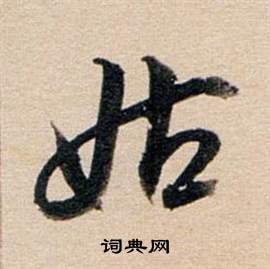 姑
词典网